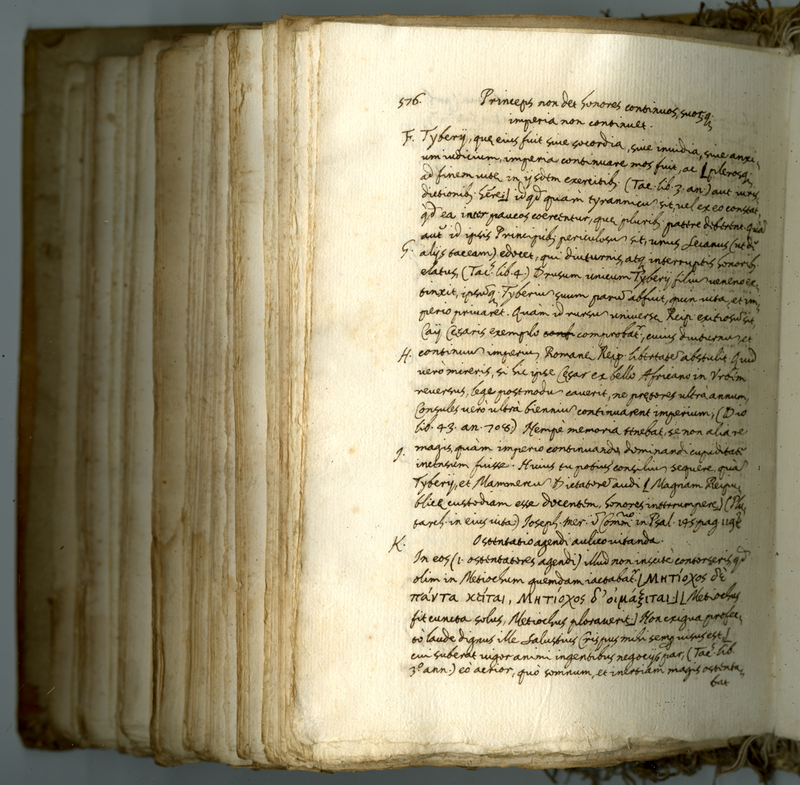 576. Princeps non det honores continuos, suosq;
imperia non continuet.
F. Tyberij, que eius fuit sive socordia, sive invidia, sive anxi-
um iudicium, imperia continuare mos fuit, ac [plerosq;
ad finem vitę in ijsdem exercitib; (Tac. lib. 3. an.) aut iuris
dictionib; hėre:] id qd quam tyrannicū sit, vel ex eo constat,
qd ea inter paucos coercentur, que pluribꝫ patere debeant. Quā
autē id ipsis Principibꝫ periculosū sit, unus Seianus (ut de
G. alijs taceam) edocet, qui diuturnis atq; interruptis honorib;
elatus, (Tac. lib. 4.) Drusum unicum Tyberij filiū veneno ex-
tinxit, ipsumq; Tyberiū suum parū abfuit, quin vita, et im-
perio privaret. Quàm id rursus universę Reip. exitiosū sit
Caij Cęsaris exemplo comprobat̃, cuius diuturnū et
H. continuū imperiū Romanę Reip. libertatē abstulit. Quid
verò mereris, si hic ipse Cęsar ex bello Africano in Urbem
reversus, lege postmodū caverit, ne pretores ultrà annum,
Consules verò ultrà bienniū continuarent imperium, (Dio
lib. 43. an. 708.) Nempè memoria tenebat, se non alia re
I. magis, quàm imperio continuando dominandi cupiditate
incensum fuisse. Huius tu potius consiliū sequere, quā
Tyberij, et Mamercū Dictatorē audi [Magnam Reipu-
blicę custodiam esse docentem, honores interrumpere] (Plu-
tarch. in eius vita) Joseph. Mer. Comm. in Psal. 145 pag. 119
K. Ostentatio agendi aulico vitanda.
In eos (i. ostentatores agendi) illud non inscitè contorseris qd
olim in Metiochum quemdam iactabat̃. [Μητίοχος δὲ
πάντα κεῖται, Μητίοχος δ' οἰμώξεται] [Metiochus
fit cuncta solus, Metiochus ploraverit] Non exigua profec-
tò laude dignus ille Salustius Crispus mihi semp visus est,
cui suberat vigor animi ingentibus negocijs par, (Tac. lib.
3º ann.) eò acrior, quò somnum, et inertiam magis ostenta-
bat